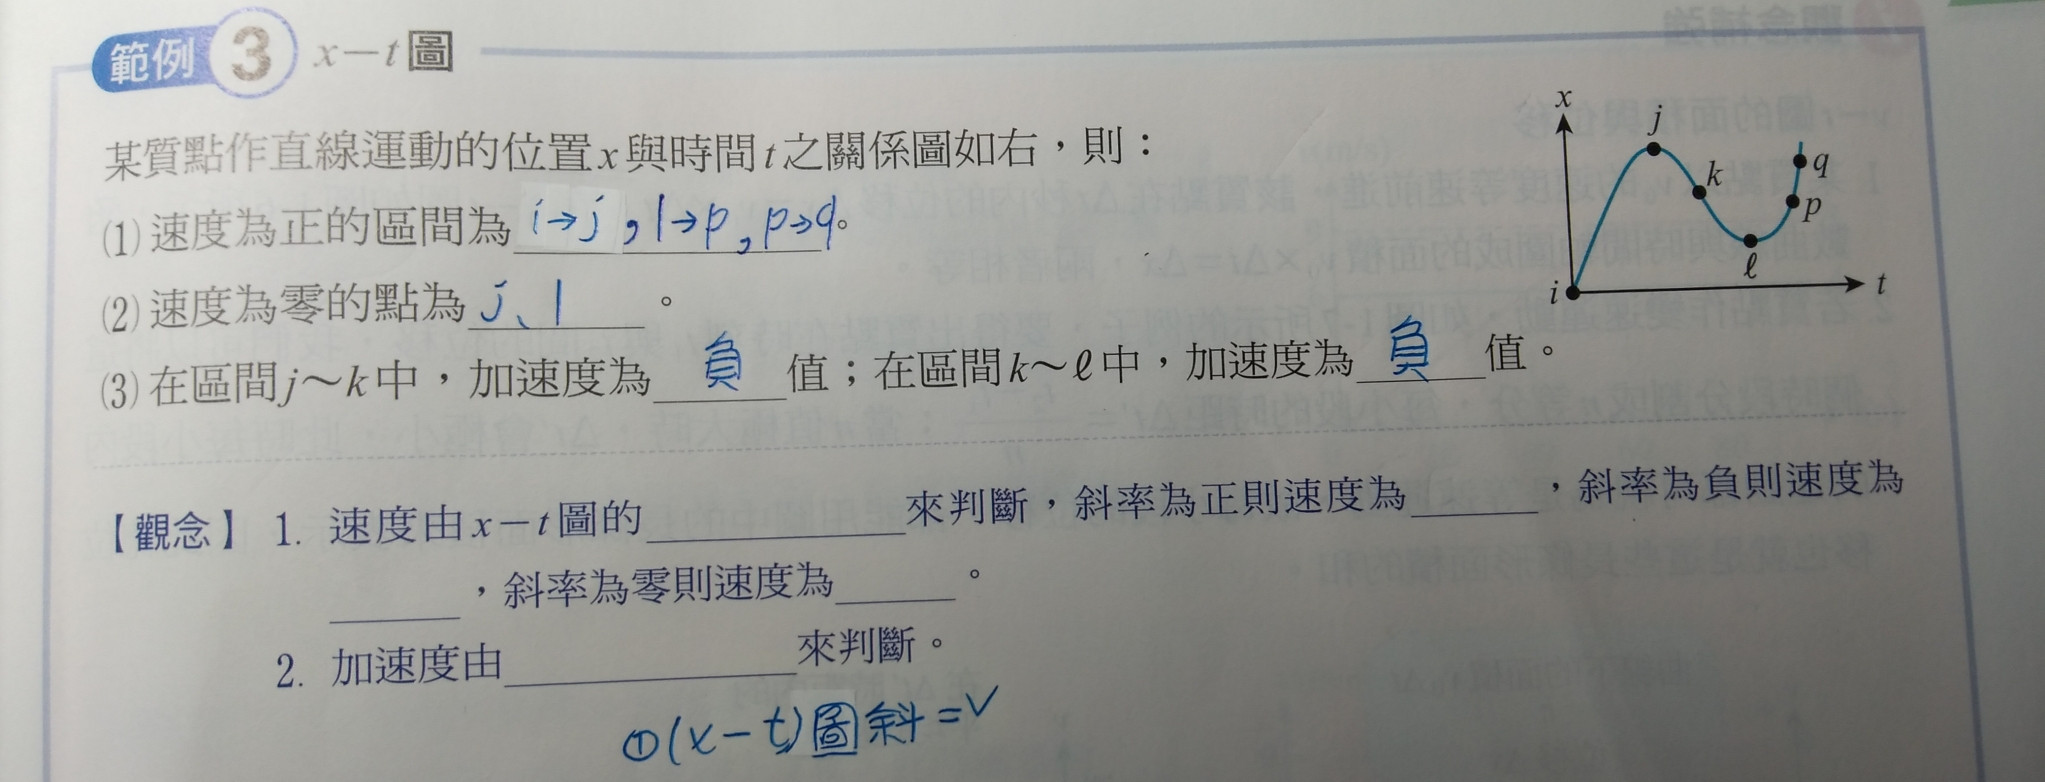 範例 3 x－t圖
某質點作直線運動的位置x與時間t之關係圖如右，則：
(1) 速度為正的區間為 i→j , l→p , p→q。
(2) 速度為零的點為 j、l 。
(3) 在區間j～k中，加速度為 負 值；在區間k～ℓ中，加速度為 負 值。
x
j
k
q
p
ℓ
i
t
【觀念】 1. 速度由x－t圖的＿＿＿＿來判斷，斜率為正則速度為＿＿，斜率為負則速度為
＿＿，斜率為零則速度為＿＿。
2. 加速度由＿＿＿＿來判斷。
①(x－t)圖斜=v